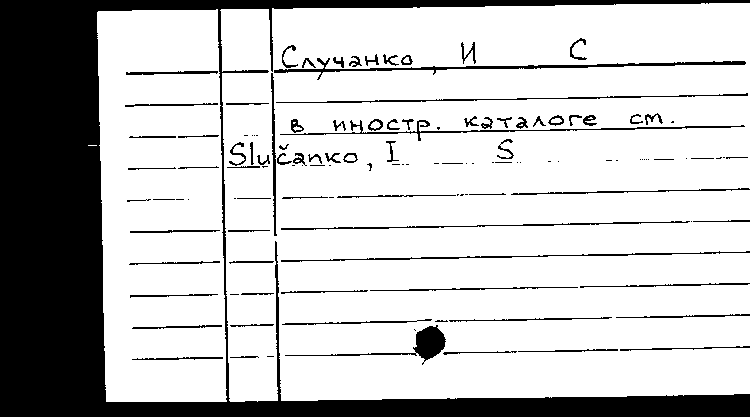 Случанко, И С
в иностр. каталоге см.
Slučanko, I S